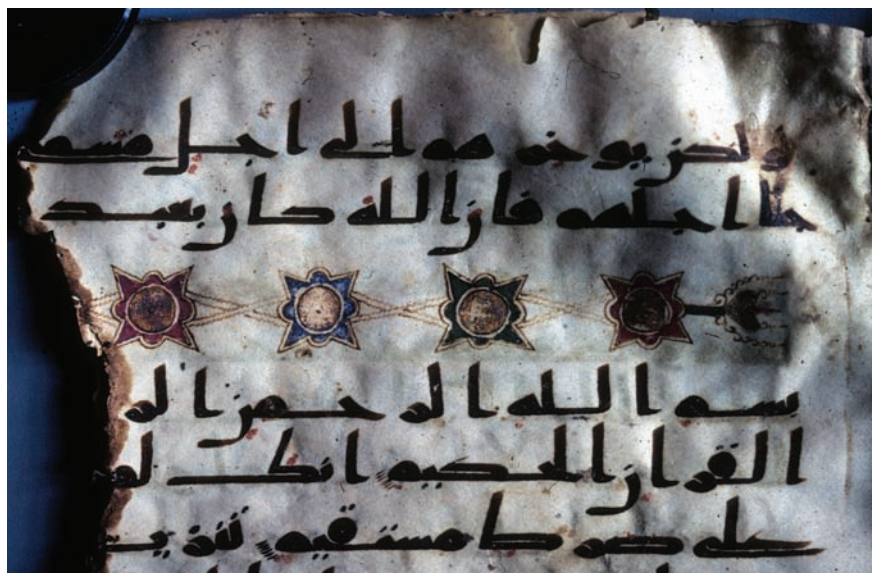 ولكن يوخرهم الى اجل مسمى
جا اجلهم فان الله كان بعبد
بسم الله الرحمن الر
القران الحكيم انك لم
على صرط مستقيم تنزيـ